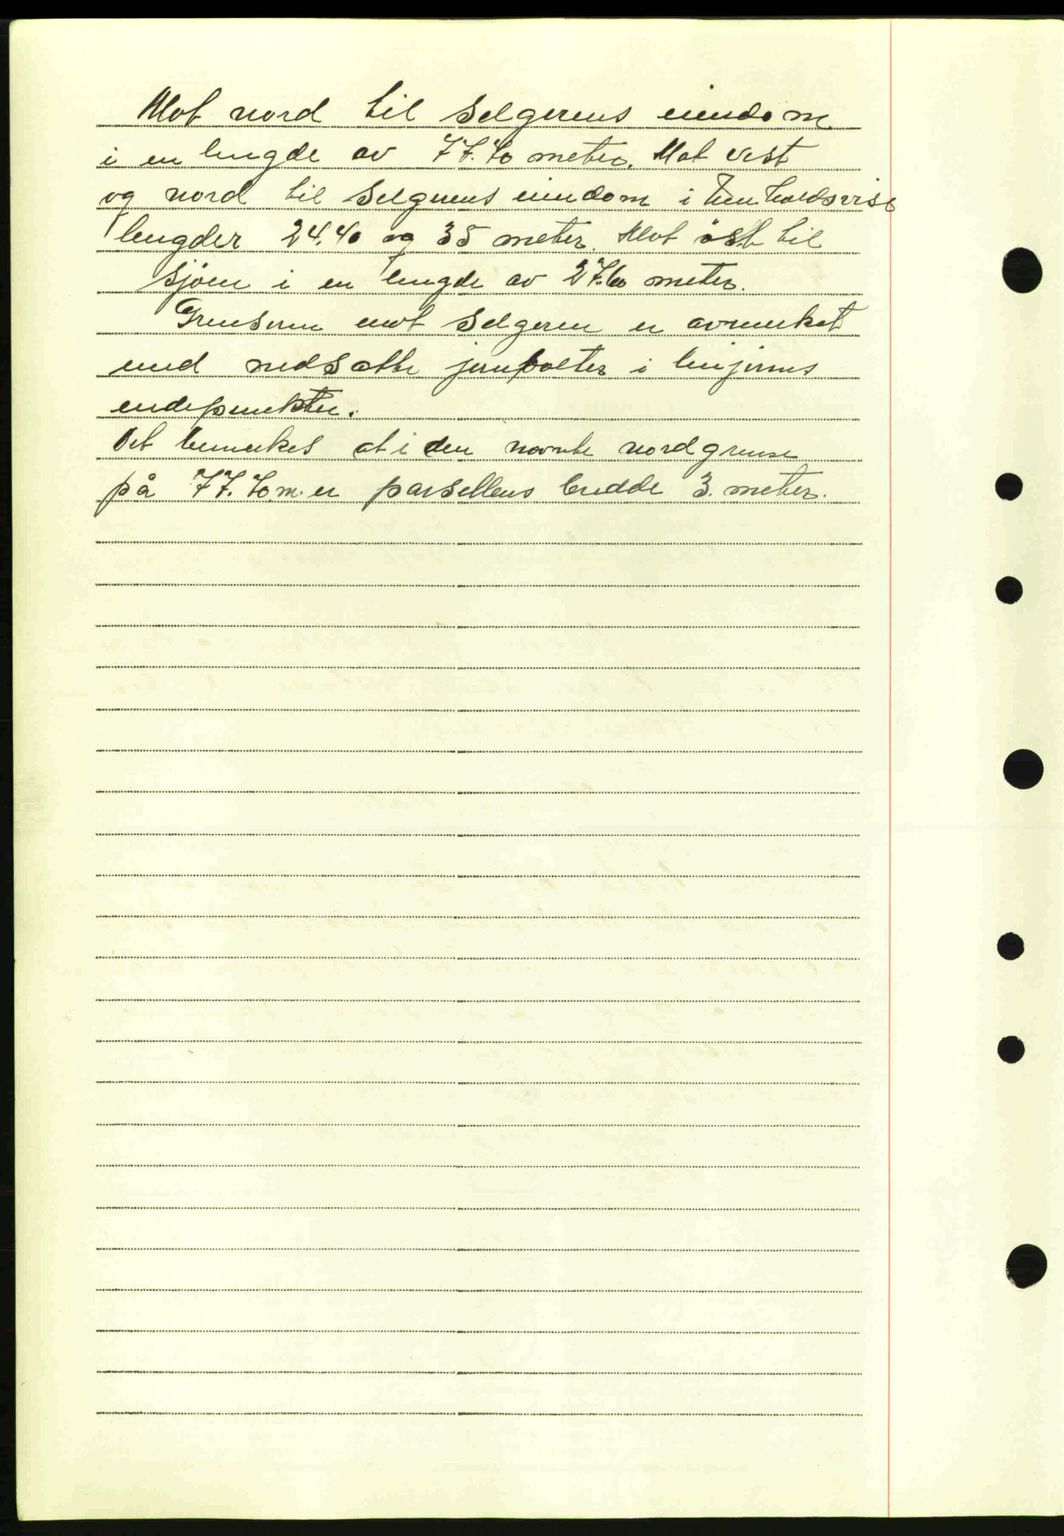 Mot nord til selgerens eiendom
i en lengde av 77.40 meter. Mot vest
og nord til selgerens eiendom i henholdsvise
lengder 24.40 og 35 meter. Mot öst til
sjöen i en lengde av 27.60 meter.
Grensene mot selgeren er avmerket
med nedsatte jernbolter i linjenes
endepunkter.
Det bemerkes at i den nevnte nordgrense
på 77.40 m. er parsellens bredde 3. meter.